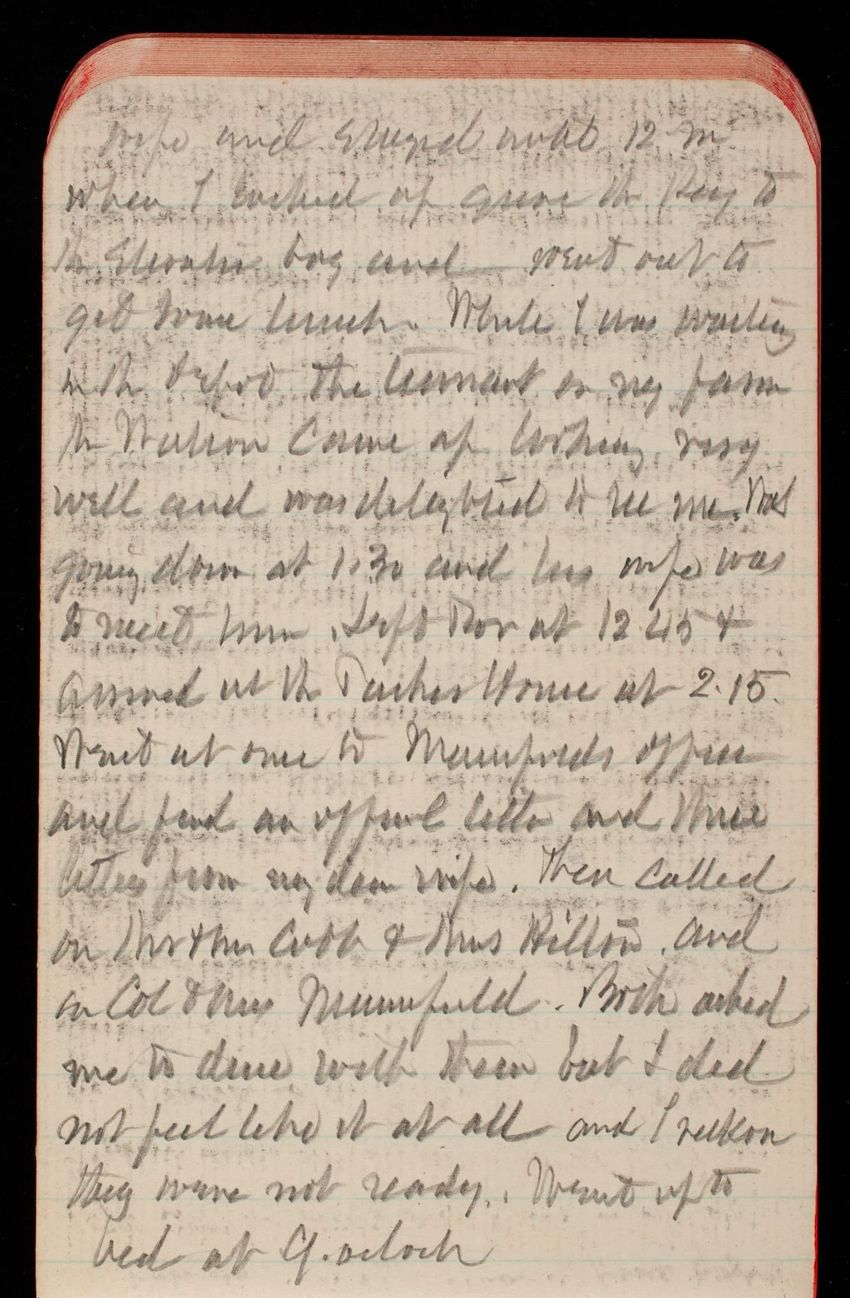 wife and stayed until 12 m
when I locked up gave the Key to
the Elevator boy and went out to
get some lunch. While I was waiting
in the depot the tenant on my farm
Mr Watson came up looking very
well and was delighted to see me. Was
going down at 1.30 and his wife was
to meet him. Left Prov at 12 45 &
arrived at the Parker House at 2.15.
Went at once to Mumfords office
and find an official letter and three
letters from my dear wife. Then called
on Mr & Mrs Cobb & Mrs Hilton. and
on Col & Mrs Mumford. Both asked
me to dine with them but I did
not feel like it at all and I reckon
they were not ready. Went up to
bed at 9. oclock